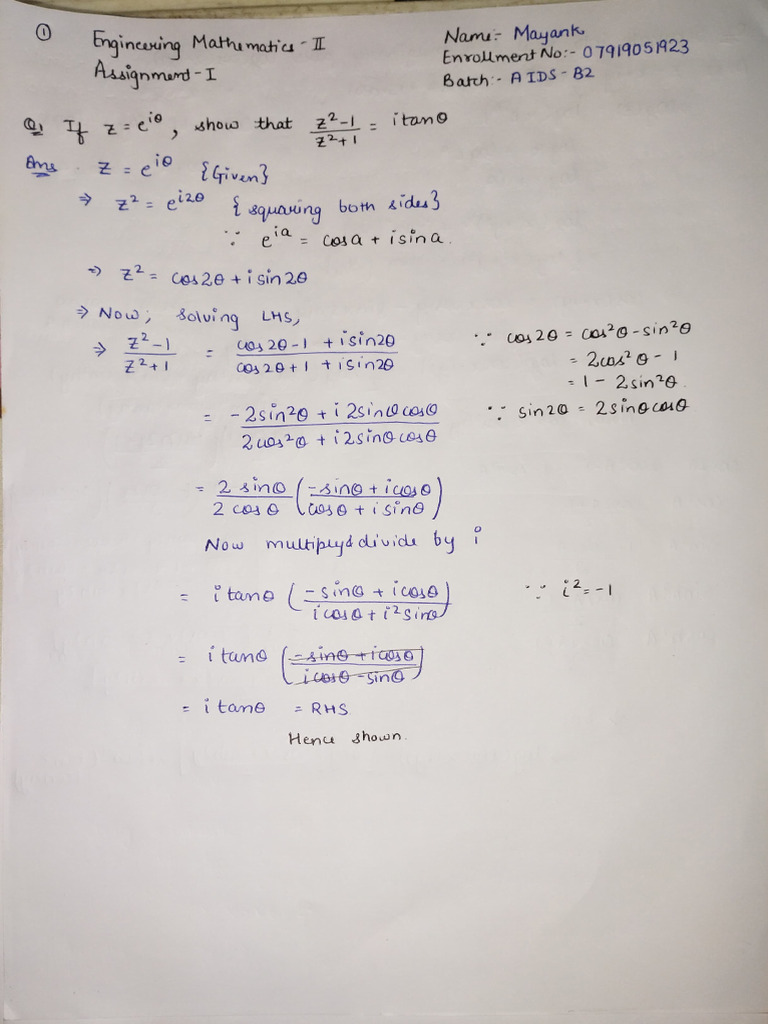 ①
Engineering Mathematics - II
Assignment - I
Name:- Mayank
Enrollment No:- 07919051923
Batch:- AIDS - B2
Q1 If z = e^{iθ}, show that (z²-1)/(z²+1) = i tanθ
Ans. z = e^{iθ} {Given}
⇒ z² = e^{i2θ} {squaring both sides}
∵ e^{ia} = cos a + i sin a.
⇒ z² = cos2θ + i sin2θ
⇒ Now; Solving LHS,
⇒ (z²-1)/(z²+1) = (cos2θ-1 + i sin2θ)/(cos2θ+1 + i sin2θ)
∵ cos2θ = cos²θ - sin²θ
= 2cos²θ - 1
= 1 - 2sin²θ.
= (-2sin²θ + i 2sinθcosθ)/(2cos²θ + i2sinθcosθ)
∵ sin2θ = 2sinθcosθ
= (2 sinθ)/(2 cosθ) ((-sinθ + i cosθ)/(cosθ + i sinθ))
Now multiply & divide by i
= i tanθ ((-sinθ + i cosθ)/(i cosθ + i² sinθ))
∵ i² = -1
= i tanθ ((-sinθ + i cosθ)/(i cosθ - sinθ))
= i tanθ = RHS
Hence shown.